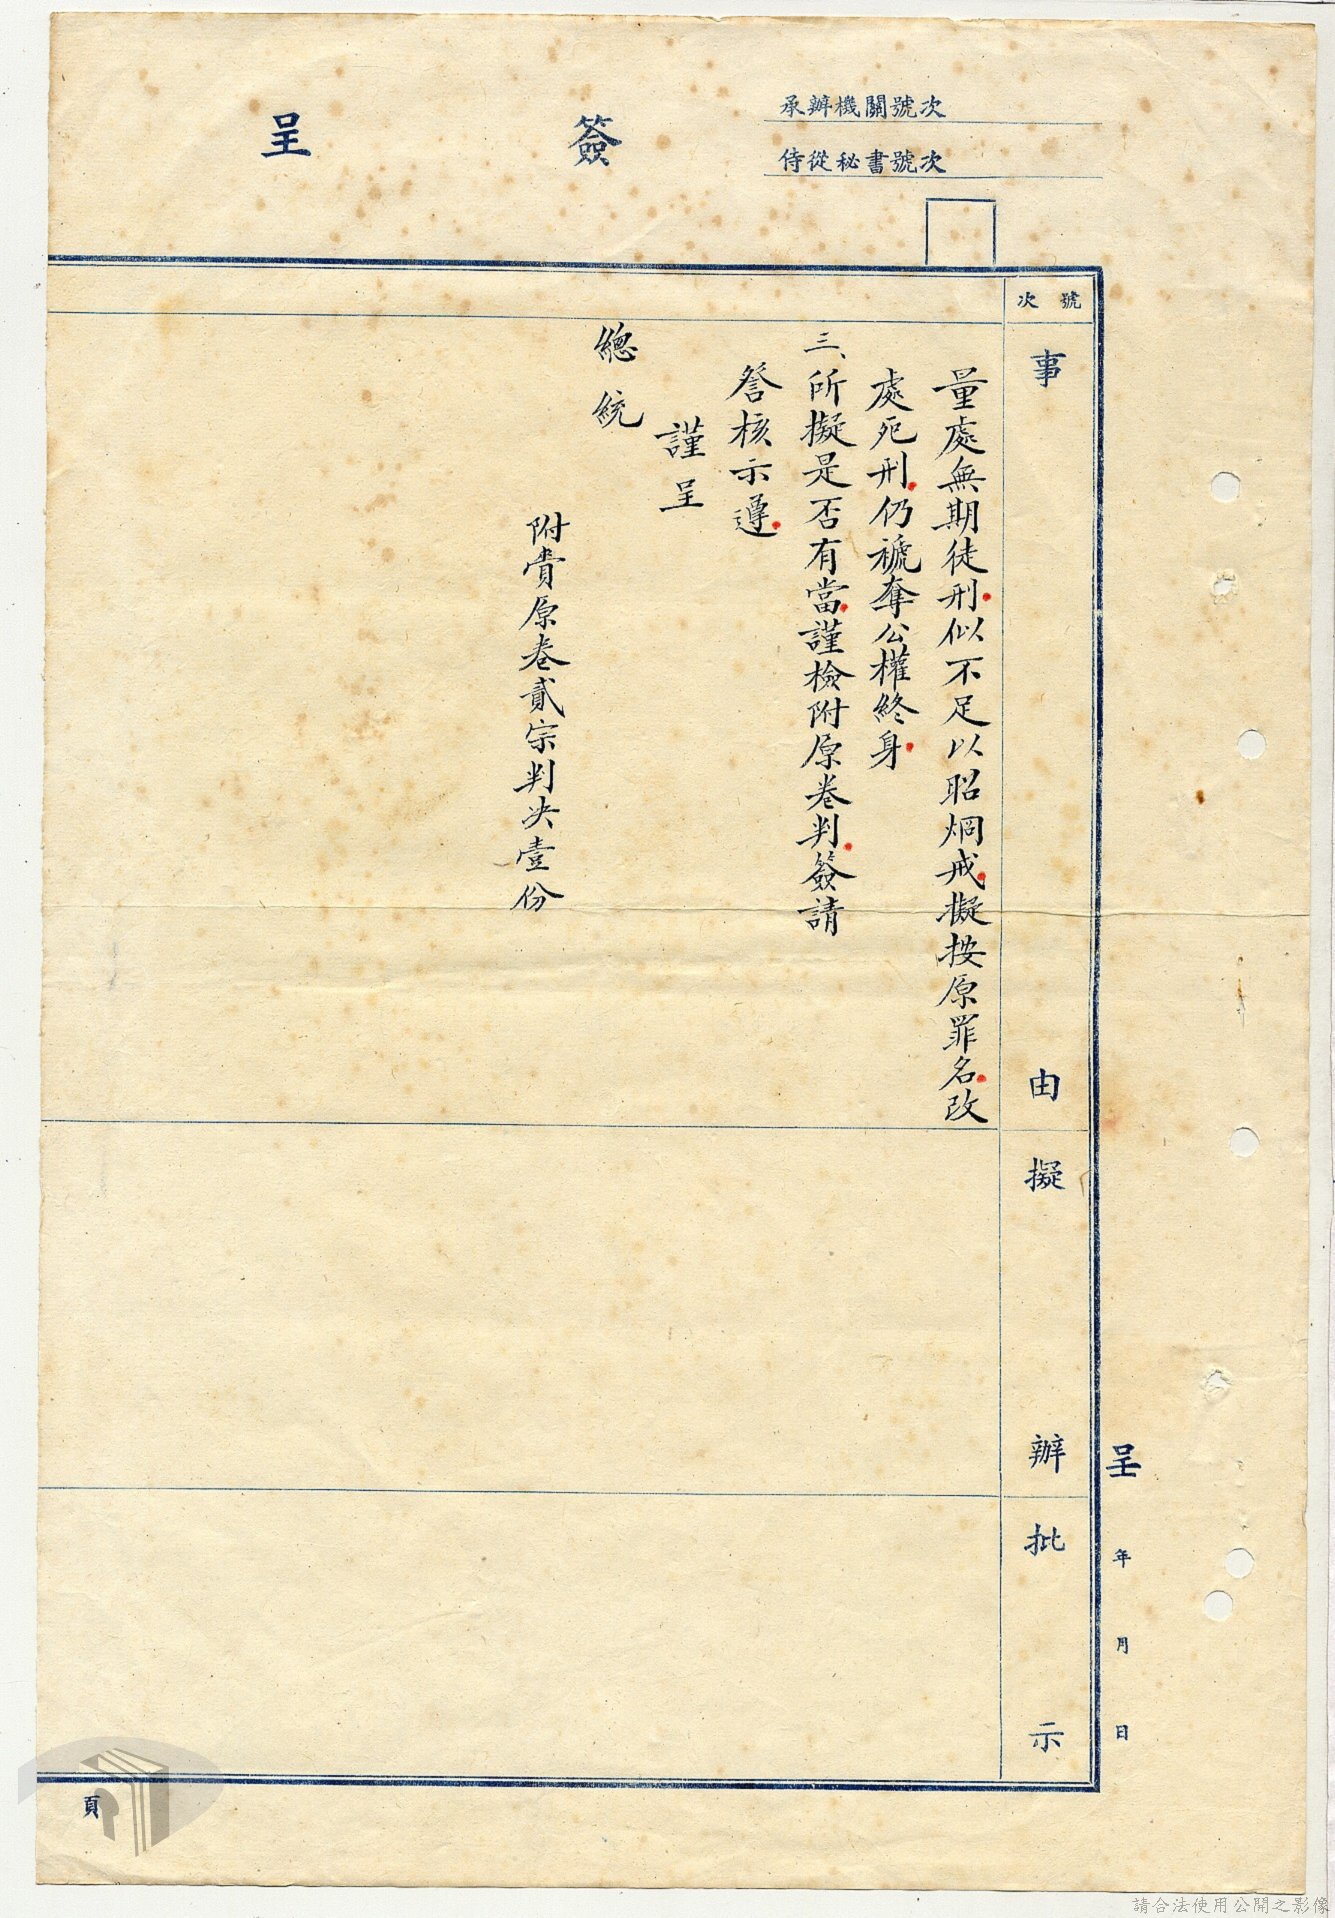 承辦機關號次
侍從秘書號次
簽呈
呈 年 月 日
號次
事由
擬辦
批示
量處無期徒刑似不足以昭烱戒擬按原罪名改
處死刑仍褫奪公權終身
三、所擬是否有當謹檢附原卷判簽請
詧核示遵
謹呈
總統
附賫原卷貳宗判決壹份
頁
請合法使用公開之影像